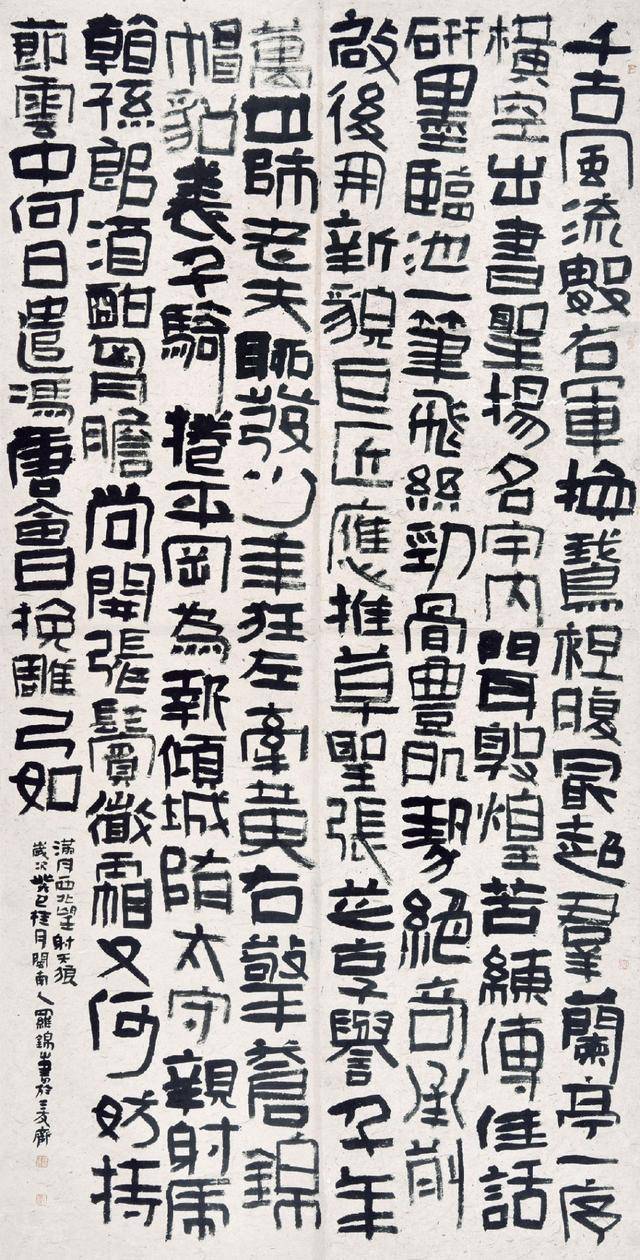 千古風流數右軍換鵞袒腹最超羣蘭亭一序
橫空出書聖揚名宇內聞敦煌苦練傳佳話
研墨臨池一筆飛絲勁骨豊肌絕奇承前
啟後用新貌巨匠應推草聖張芝享譽千年
萬世師老夫聊發少年狂左牽黃右擎蒼錦
帽貂裘千騎捲平岡為報傾城隨太守親射虎
看孫郎酒酣胷膽尚開張鬢微霜又何妨持
節雲中何日遣馮唐會挽雕弓如
滿月西北望射天狼
歲次癸巳桂月閩南人羅錦書於齋